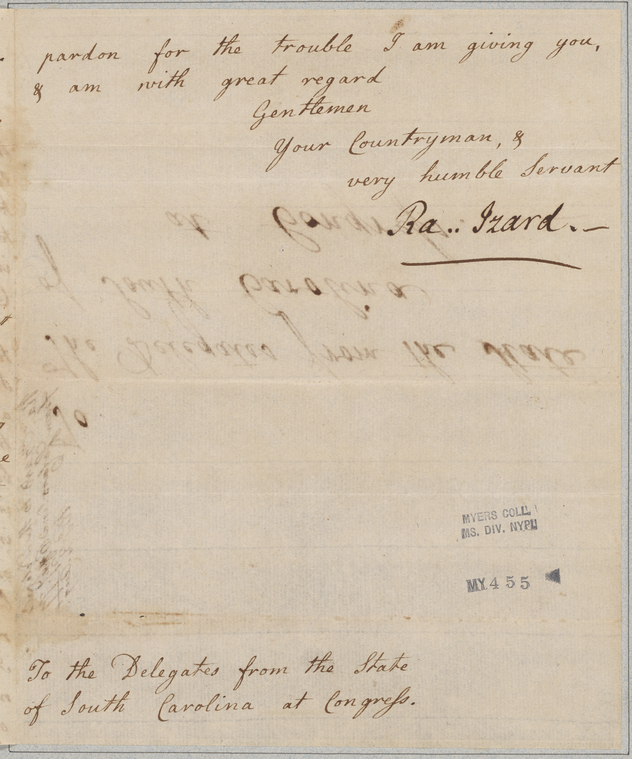 pardon for the trouble I am giving you,
& am with great regard
Gentlemen
Your Countryman, &
very humble Servant
Ra.. Izard.—
MYERS COLL.
MS. DIV. NYPL
MY.455
To the Delegates from the State
of South Carolina at Congress.